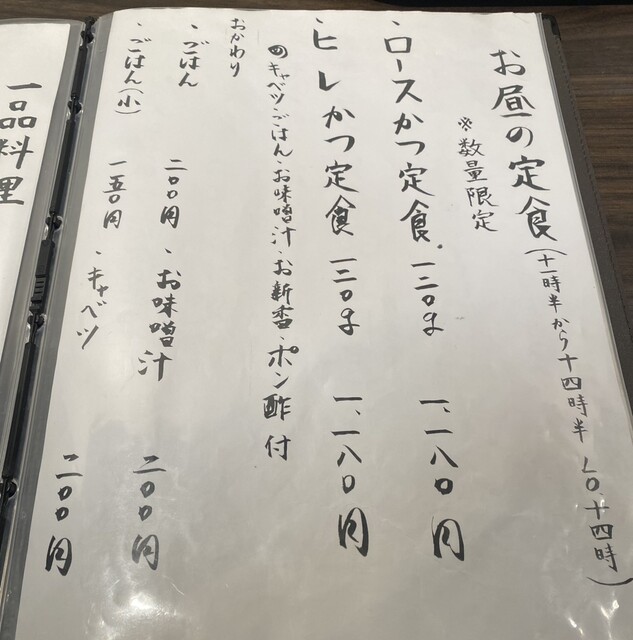 お昼の定食(十一時半から十四時半 L.O.十四時)
※数量限定
・ロースかつ定食 一三〇g 一、一八〇円
・ヒレかつ定食 一三〇g 一、一八〇円
キャベツ・ごはん・お味噌汁・お新香・ポン酢付
おかわり
・ごはん 二〇〇円 ・お味噌汁 二〇〇円
・ごはん(小) 一五〇円 ・キャベツ 二〇〇円
一品料理